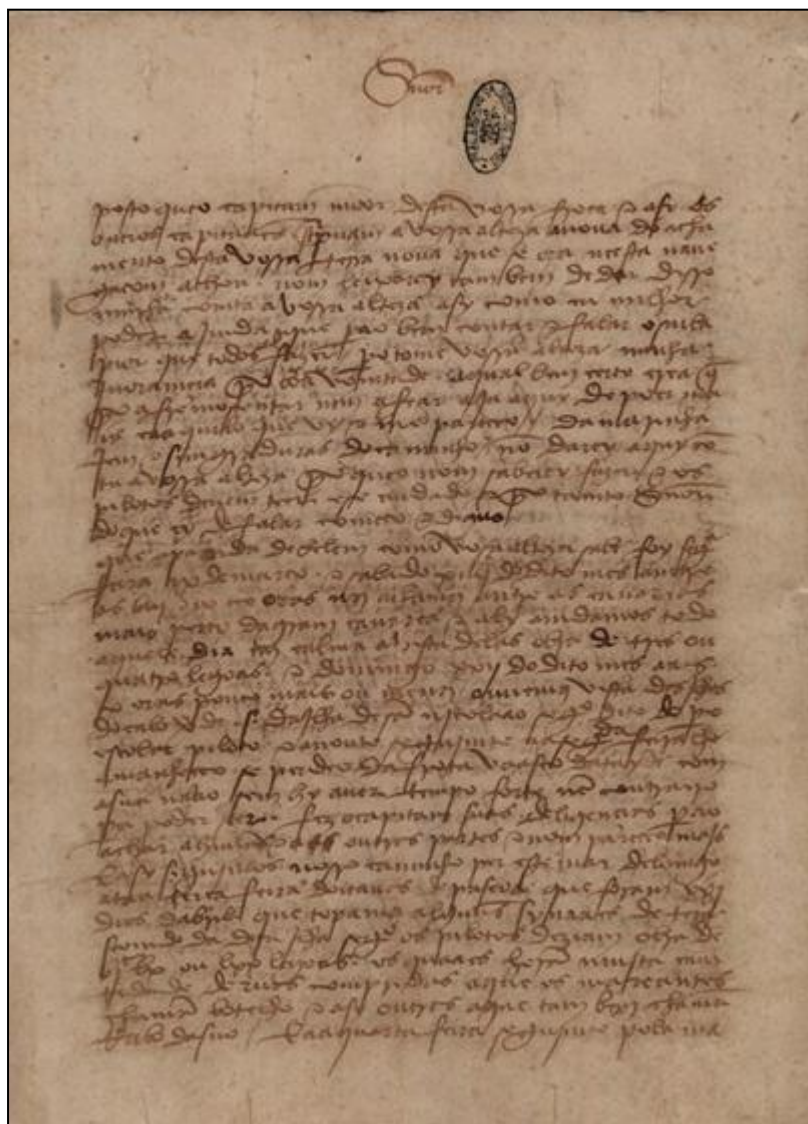 Snõr
posto queo capitam moor desta vossa frota e asy os
outros capitaães screpuam avossa alteza anoua do acha
mento desta vossa terra noua que se ora neesta naue
gaçom achou. nom leixarey tambem de dar disso
minha comta avossa alteza asy como eu milhor
poder ajmda que pera o bem contar e falar o saiba
pior que todos fazer. / pero tome vossa alteza minha
jnoramçia por boa vomtade. aqual bem çerto crea q̃
por afremosentar nem afear aja aquy de poer ma
is caaquilo que vy e me pareçeo. / da marinha
jem e simgraduras do caminho nõ darey aquy cõ
ta avossa alteza por queo nom saberey fazer e os
pilotos deuem teer ese cuidado e por tanto Snõr
do que ey de falar começo e diguo
que apartida de belem como vosa alteza sabe foy segª
feira ix de março. e sabado xiiij do dito mes amtre
as biij e ix oras nos achamos amtre as canareas
mais perto da gram canarea e aly amdamos todo
aquele dia em calma avista delas obra de tres ou
quatro legoas. e domingo xxij do dito mes aas
x oras pouco mais ou menos ouuemos vista das jlhas
do cabo verde .s. da jlha de sã njcolaao segº dito de pº
escolar piloto. e anoute segujmte aasegda feira lhe
amanheçeo se perdeo da frota vaasco datayde com
asua naao sem hy auer tempo forte nẽ contrairo
pera poder seer. fez ocapitam suas deligençias perao
achar ahuũas e aoutras partes e nom pareçeo majs
E asy segujmos nosso caminho per este mar delomgo
ataa terça feira doitauas de pascoa que foram xxj
dias dabril que topamos alguũs synaaes de tera
seendo da dita jlha segº os pilotos deziam obra de
bjᶜlx ou lxx legoas. os quaaes herã mujta cam
tidade deruas compridas aque os mareantes
chamã botelho e asy outras aque tambem chamã
rrabo dasno. / E aaquarta feira segujmte pola ma